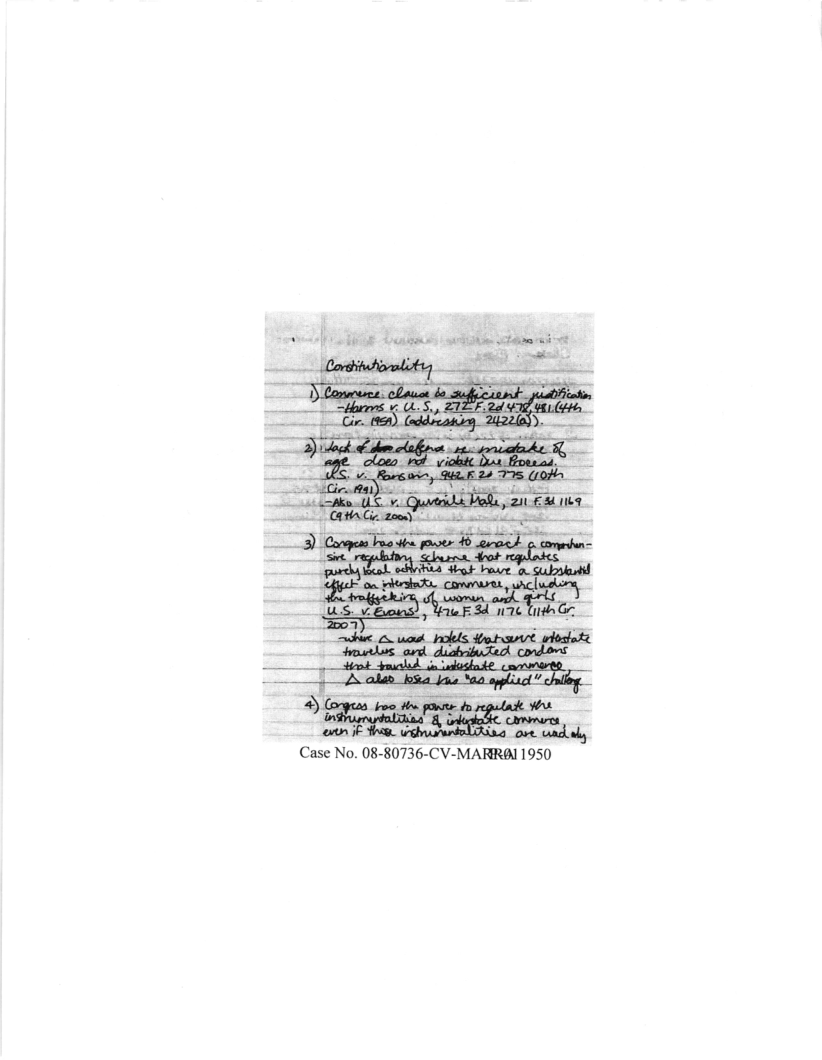 Constitutionality
1) Commerce clause is sufficient justification
- Harms v. U.S., 272 F.2d 478, 481 (4th
Cir. 1959) (addressing 2422(a)).
2) Lack of defense re mistake of
age does not violate Due Process.
U.S. v. Ransom, 942 F.2d 775 (10th
Cir. 1991)
- Also U.S. v. Juvenile Male, 211 F.3d 1169
(9th Cir. 2000)
3) Congress has the power to enact a comprehen-
sive regulatory scheme that regulates
purely local activities that have a substantial
effect on interstate commerce, including
the trafficking of women and girls
U.S. v. Evans, 476 F.3d 1176 (11th Cir.
2007)
- where Δ used hotels that serve interstate
travelers and distributed condoms
that traveled in interstate commerce,
Δ also loses his "as applied" challenge
4) Congress has the power to regulate the
instrumentalities of interstate commerce,
even if those instrumentalities are used only
Case No. 08-80736-CV-MARRA 1950